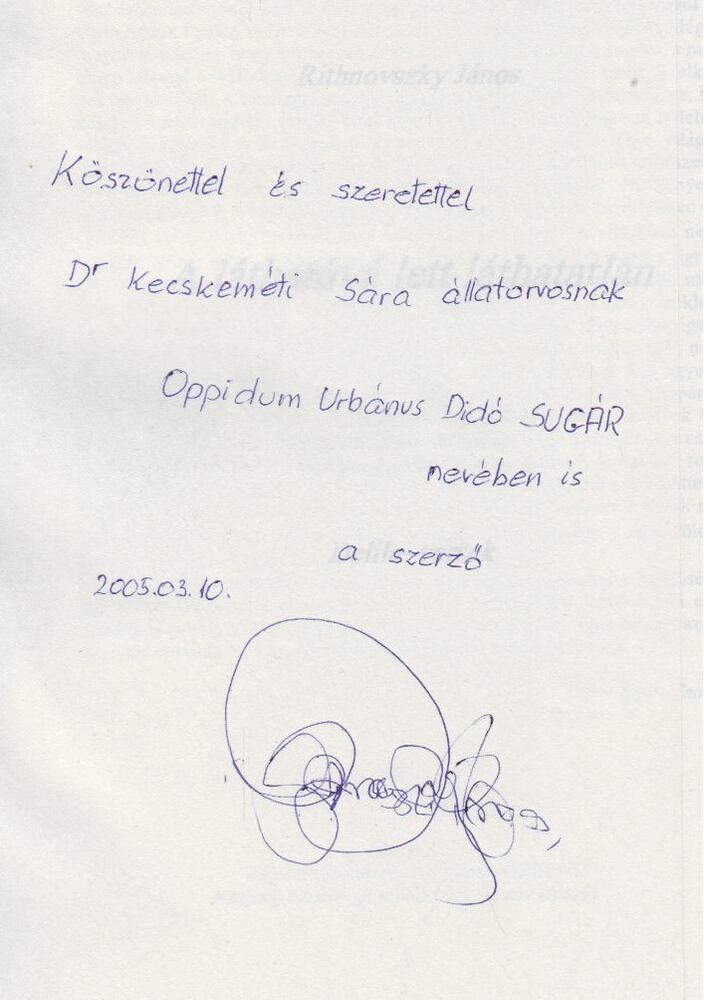 Ríthnovszky János
Köszönettel és szeretettel
Dr Kecskeméti Sára állatorvosnak
A láthatóvá lett láthatatlan
Oppidum Urbánus Didó SUGÁR
nevében is
a szerző
2005.03.10.